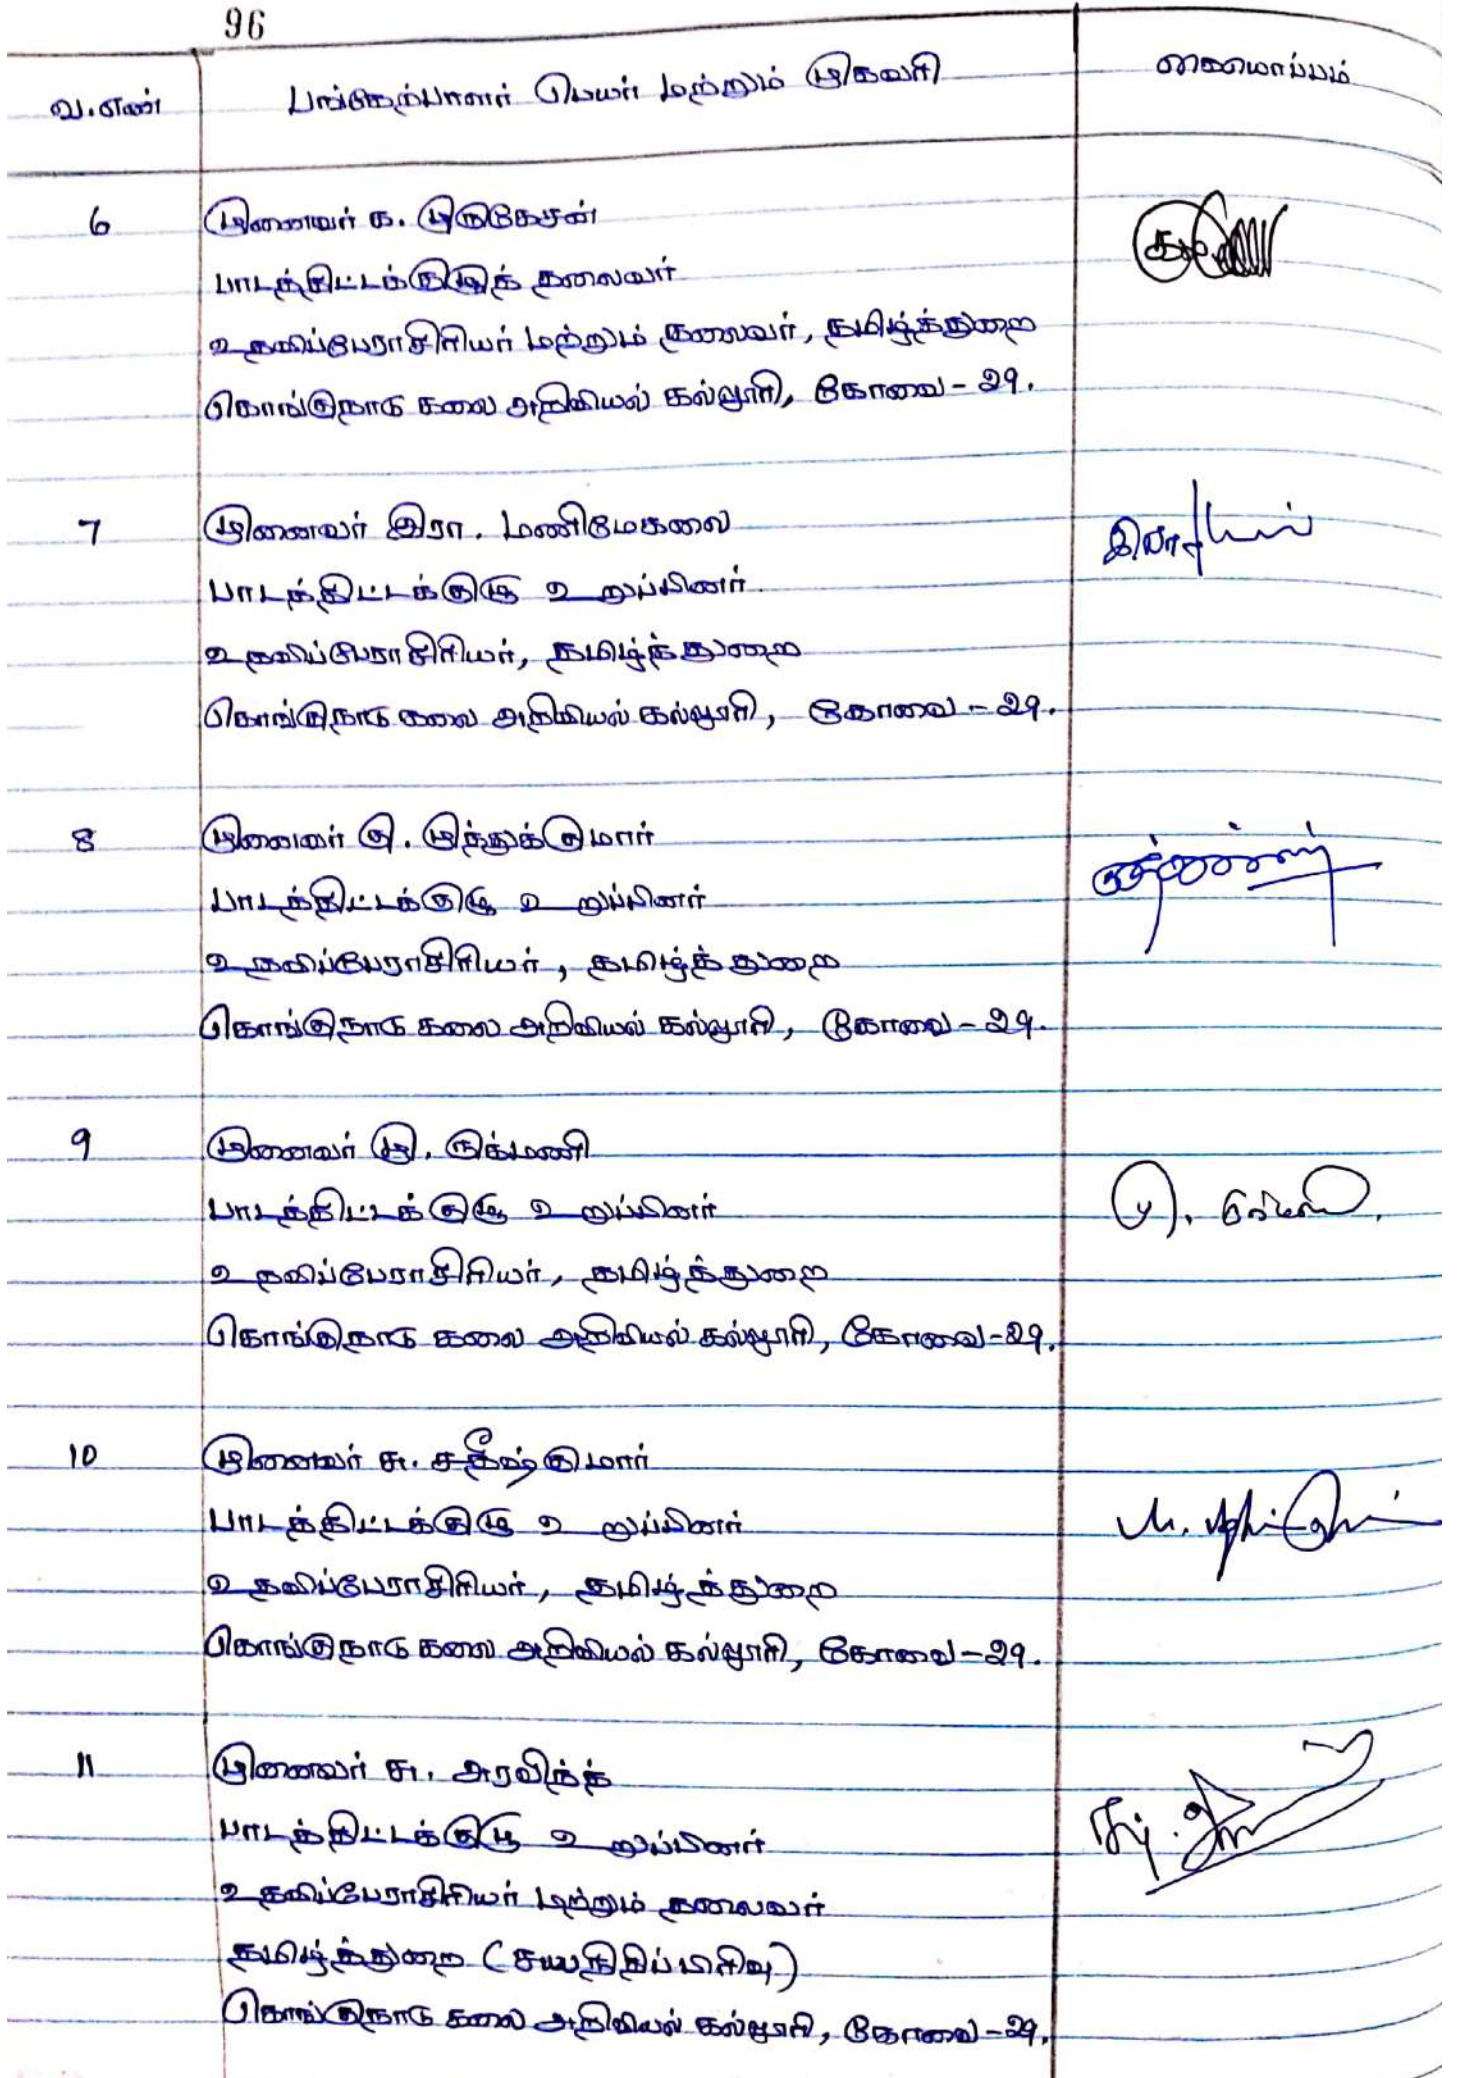 96
வ.எண் பங்கேற்பாளர் பெயர் மற்றும் முகவரி கையொப்பம்
6 முனைவர் க. முருகேசன்
பாடத்திட்டக்குழுத் தலைவர்
உதவிப்பேராசிரியர் மற்றும் தலைவர், தமிழ்த்துறை
கொங்குநாடு கலை அறிவியல் கல்லூரி, கோவை - 29.
7 முனைவர் இரா. மணிமேகலை
பாடத்திட்டக்குழு உறுப்பினர்
உதவிப்பேராசிரியர், தமிழ்த்துறை
கொங்குநாடு கலை அறிவியல் கல்லூரி, கோவை - 29.
8 முனைவர் கு. முத்துக்குமார்
பாடத்திட்டக்குழு உறுப்பினர்
உதவிப்பேராசிரியர், தமிழ்த்துறை
கொங்குநாடு கலை அறிவியல் கல்லூரி, கோவை - 29.
9 முனைவர் மு. ருக்மணி
பாடத்திட்டக்குழு உறுப்பினர்
உதவிப்பேராசிரியர், தமிழ்த்துறை
கொங்குநாடு கலை அறிவியல் கல்லூரி, கோவை - 29.
10 முனைவர் சு. சதீஷ்குமார்
பாடத்திட்டக்குழு உறுப்பினர்
உதவிப்பேராசிரியர், தமிழ்த்துறை
கொங்குநாடு கலை அறிவியல் கல்லூரி, கோவை - 29.
11 முனைவர் சு. அரவிந்த்
பாடத்திட்டக்குழு உறுப்பினர்
உதவிப்பேராசிரியர் மற்றும் தலைவர்
தமிழ்த்துறை (சுயநிதிப்பிரிவு)
கொங்குநாடு கலை அறிவியல் கல்லூரி, கோவை - 29.